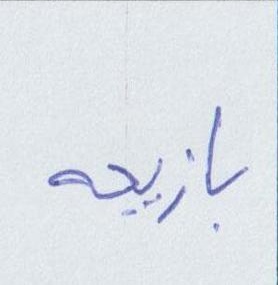 بازیچه